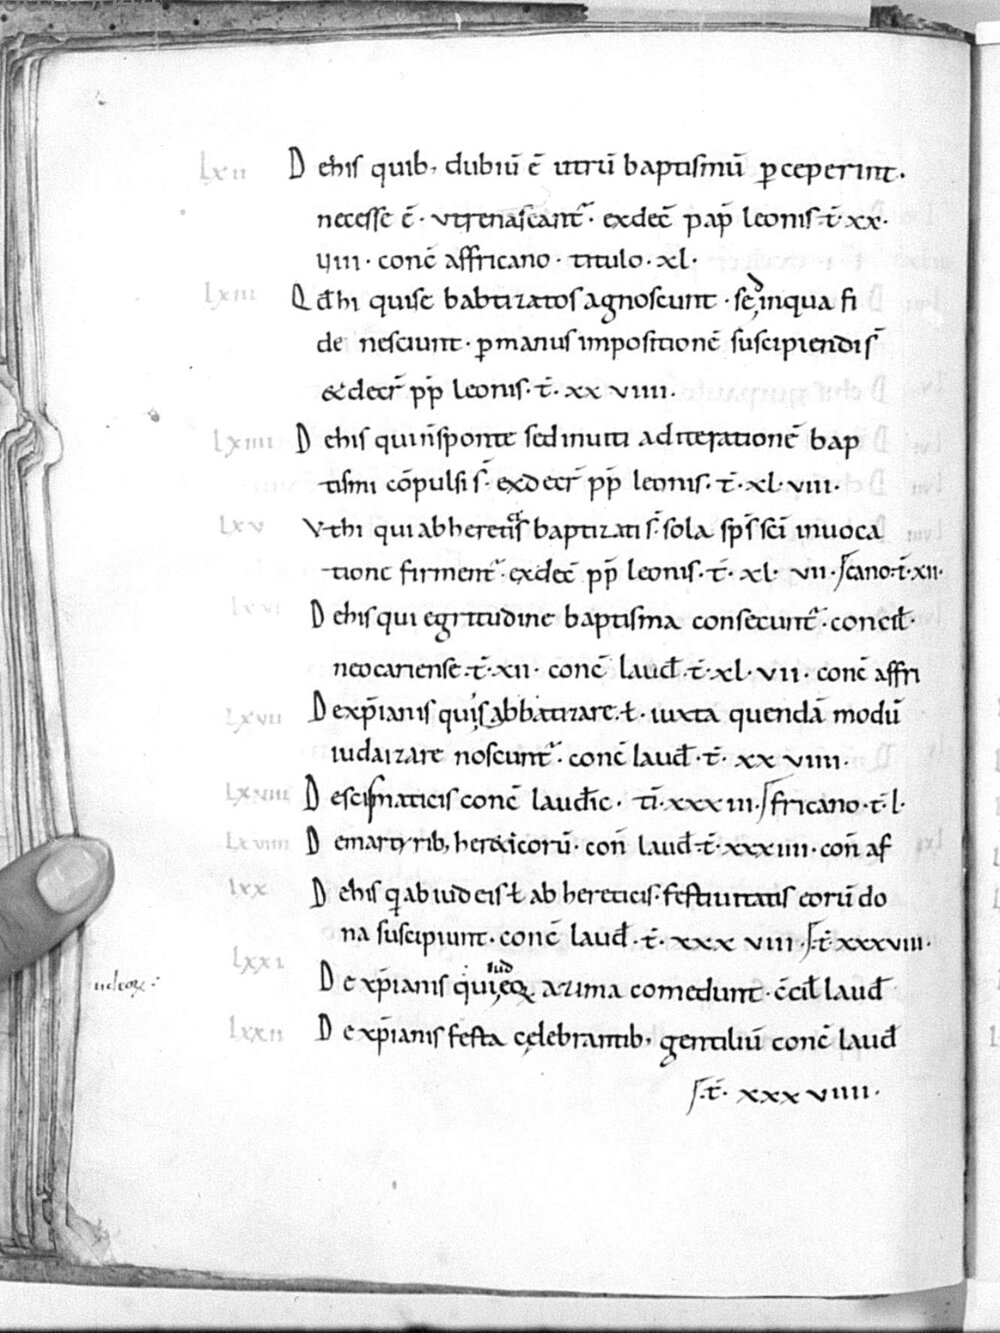 lxii D ehis quib; dubiū ē utrū baptismū ꝑceperint.
necesse ē · utrenascant᷑ · exdec̄ pap̄ leonis · t̄ · xx ·
iiii · conc̄ affricano · titulo · xl ·
lxiii Q d̄hi quise babtizatos agnoscunt · sed inqua fi
de nesciunt · ꝑmanus impositionē suscipiendi s̄
&decr̄ pp̄ leonis · t̄ · xx viiii ·
lxiiii D ehis qui n̄sponte sed inuiti aditerationē bap
tismi cōpulsi s̄ · exdecr̄ pp̄ leonis · t̄ · xl · viii ·
lxv V thi qui abhereticis baptizati s̄ · sola sp̄s sc̄i inuoca
tione firment᷑ · exdec̄ pp̄ leonis · t̄ · xl · vii · cano · t̄ · xii ·
lxvi D ehis qui egritudine baptisma consecunt᷑ · concil̄ ·
neocariense · t̄ · xii · conc̄ laud̄ · t̄ · xl · vii · conc̄ affri
lxvii D exp̄ianis quis abbatizare · ł · iuxta quendā modū
iudaizare noscunt᷑ · conc̄ laud̄ · t̄ · xx viiii ·
lxviii D escismaticis conc̄ laudic̄ · tī · xxxiii fricano · t̄ · l ·
lxviiii D emartyrib; hereticorū · con̄ laud̄ · t̄ · xxxiiii · con̄ af
lxx D ehis q̄ ab iudeis ł ab hereticis · festiuitatis eorū do
na suscipiunt · conc̄ laud̄ · t̄ · xxx viii · t̄ xxxviii ·
lxxi D e xp̄ianis qui iudeoꝝ azima comedunt · c̄cil̄ laud̄
iudeoꝝ :
lxxii D e xp̄ianis festa cęlebrantib; gentiliū conc̄ laud̄
t̄ · xxx viiii ·